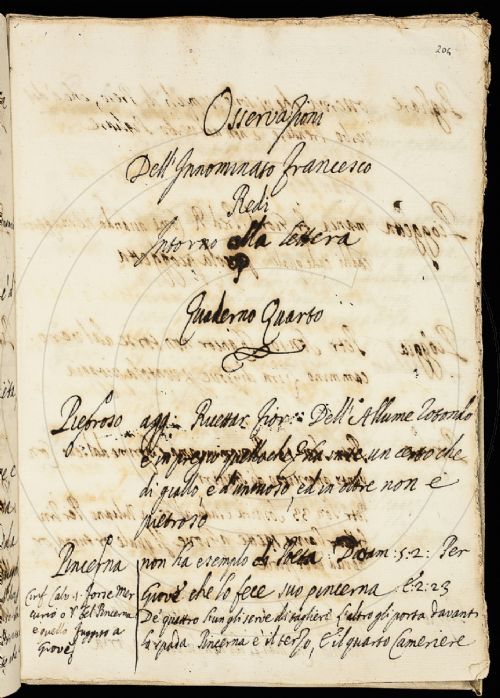 205
Osservazioni
Dell'Innominato Francesco
Redi
Intorno alla lettera
P
Quaderno Quarto
Pietroso agg: Ricettar. fior: Dell'Allume rotondo
è in pregio quello che ha in se un certo che
di giallo e d'untuoso, ed in oltre non è
pietroso
Pincerna non ha esempio di Poeta. Dittam: 5:2: Per
Giove che lo fece suo pincerna. E 2:23
De' quattro l'un gli serve di tagliere, l'altro gli porta davanti
la spada, Pincerna è il terzo, e il quarto Cameriere
Cirif. Calv. 1. forse Mer
curio o V' del Pincerna
e quello
Giove